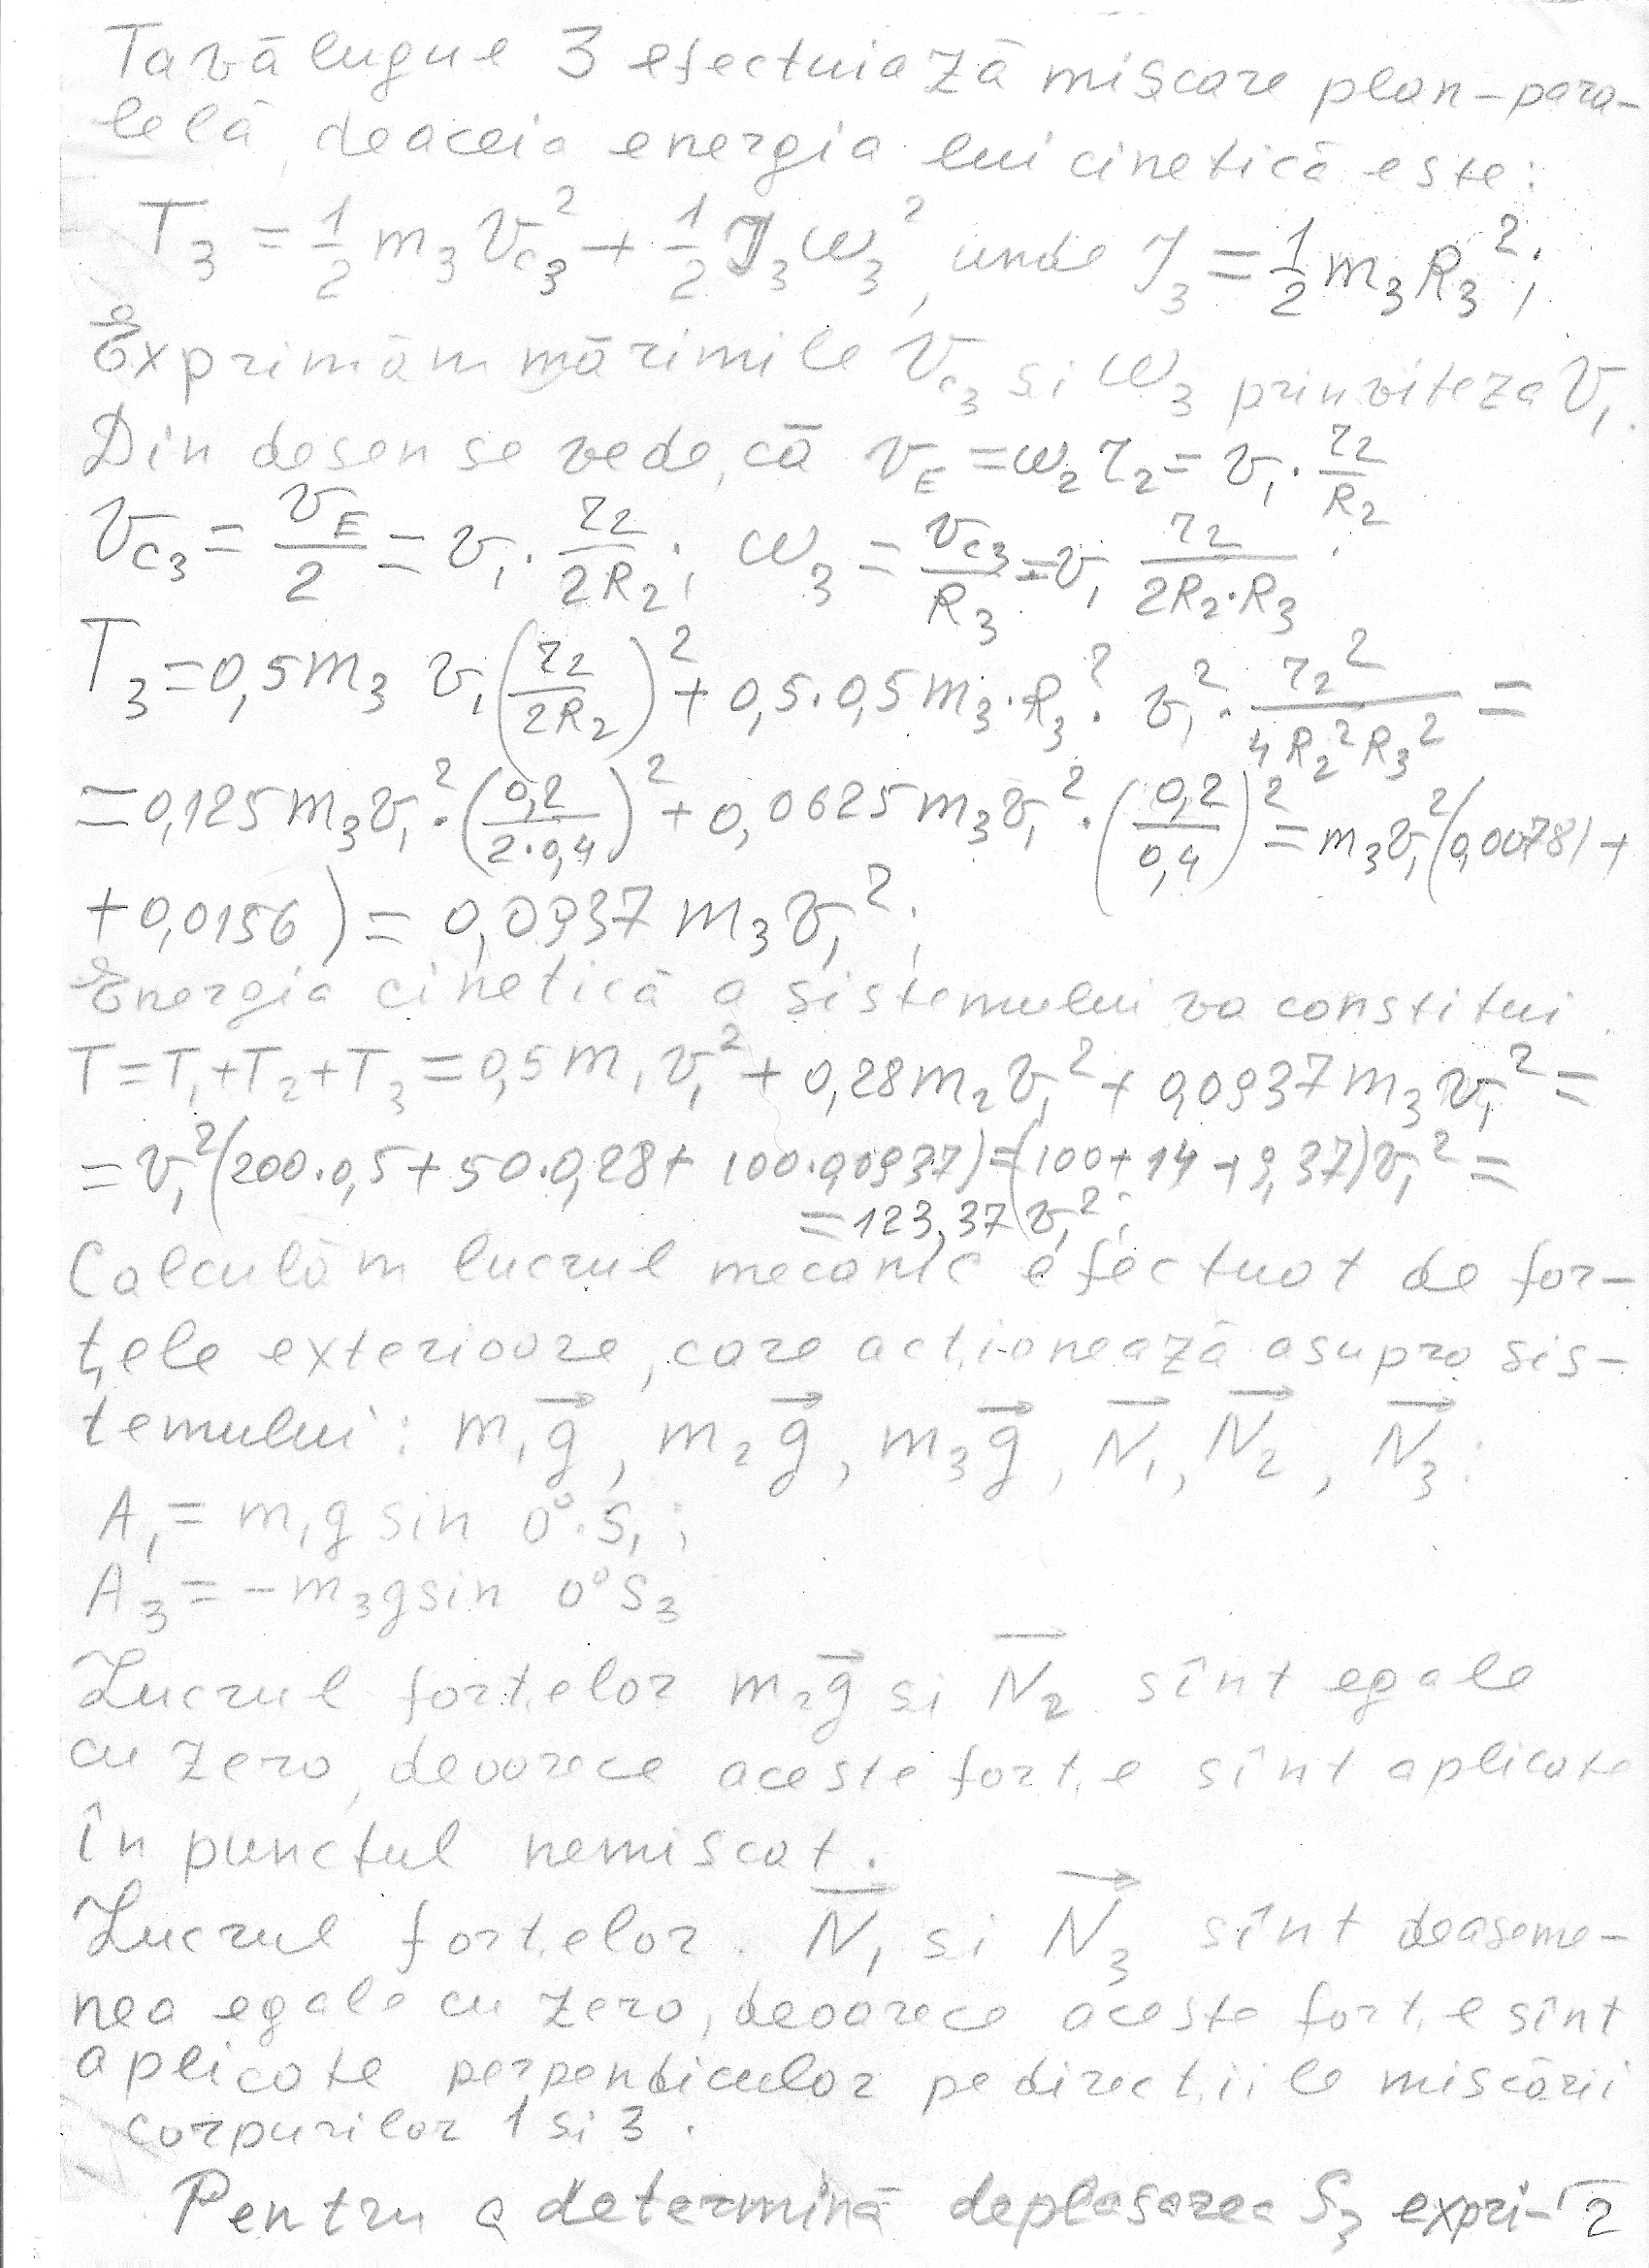 Tavălugul 3 efectuiază mișcare plan-para-
lelă, deaceia energia lui cinetică este:
T₃ = 1/2 m₃ v_C₃² + 1/2 J₃ ω₃², unde J₃ = 1/2 m₃ R₃²;
Exprimăm mărimile v_C₃ si ω₃ prin viteza v₁.
Din desen se vede, că v_E = ω₂ r₂ = v₁ · r₂/R₂
v_C₃ = v_E/2 = v₁ · r₂/2R₂; ω₃ = v_C₃/R₃ = v₁ r₂/2R₂·R₃;
T₃ = 0,5 m₃ v₁ (r₂/2R₂)² + 0,5·0,5 m₃·R₃²· v₁² · r₂²/4R₂²R₃² =
= 0,125 m₃ v₁² · (0,2/2·0,4)² + 0,0625 m₃ v₁² · (0,2/0,4)² = m₃ v₁² (0,00781 +
+ 0,0156) = 0,0937 m₃ v₁²;
Energia cinetică a sistemului va constitui
T = T₁ + T₂ + T₃ = 0,5 m₁ v₁² + 0,28 m₂ v₁² + 0,0937 m₃ v₁² =
= v₁² (200·0,5 + 50·0,28 + 100·0,0937) = (100 + 14 + 9,37) v₁² =
= 123,37 v₁²;
Calculăm lucrul mecanic efectuat de for-
țele exterioare, care acționează asupra sis-
temului: m₁g⃗, m₂g⃗, m₃g⃗, N⃗₁, N⃗₂, N⃗₃:
A₁ = m₁g sin 0°·S₁;
A₃ = -m₃g sin 0° S₃
Lucrul forțelor m₂g⃗ si N⃗₂ sînt egale
cu zero, deoarece aceste forțe sînt aplicate
în punctul nemiscat.
Lucrul forțelor N⃗₁ si N⃗₃ sînt deaseme-
nea egale cu zero, deoarece aceste forțe sînt
aplicate perpendicular pe direcțiile miscării
corpurilor 1 si 3.
Pentru a determină deplasarea S₃ expri-
2